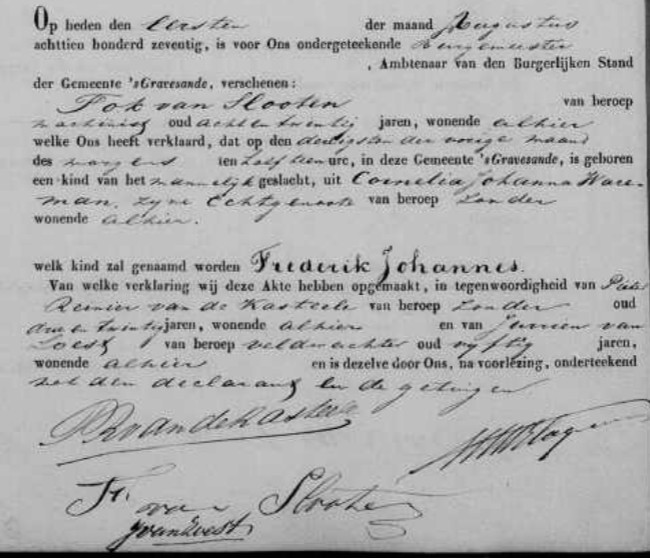 Op heden den Eersten der maand Augustus
achttien honderd zeventig, is voor Ons ondergeteekende Burgemeester
, Ambtenaar van den Burgerlijken Stand
der Gemeente 'sGravesande, verschenen:
Fok van Slooten van beroep
machinist oud acht en twintig jaren, wonende alhier
welke Ons heeft verklaard, dat op den dertigsten der vorige maand
des morgens ten half tien ure, in deze Gemeente 'sGravesande, is geboren
een kind van het mannelijk geslacht, uit Cornelia Johanna Ware-
man, zijne Echtgenoote van beroep Zonder
wonende alhier.
welk kind zal genaamd worden Frederik Johannes.
Van welke verklaring wij deze Akte hebben opgemaakt, in tegenwoordigheid van Pieter
Reinier van de Kasteele van beroep Zonder oud
drie en twintig jaren, wonende alhier en van Jurrien van
Loest van beroep veldwachter oud vijftig jaren,
wonende alhier en is dezelve door Ons, na voorlezing, onderteekend
met den declarant en de getuigen.
PR van de Kasteele
F. van Slooten